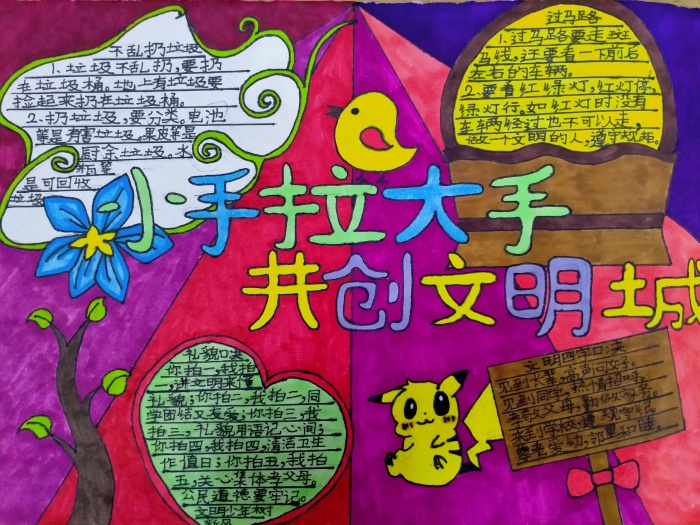 不乱扔垃圾
1.垃圾不乱扔,要扔
在垃圾桶。地上有垃圾要
捡起来扔在垃圾桶。
2.扔垃圾,要分类。电池
等是有害垃圾,果皮等是
厨余垃圾,水
瓶等
是可回收
垃圾
过马路
1.过马路要走斑
马线,还要看一下前后
左右的车辆。
2.要看红绿灯,红灯停,
绿灯行。如红灯时没有
车辆经过也不可以走,
做一个文明的人,遵守规矩。
小手拉大手
共创文明城
礼貌口决
你拍一,我拍
一,讲文明来懂
礼貌;你拍二,我拍二,同
学团结又友爱;你拍三,我
拍三,礼貌用语记心间;
你拍四,我拍四,清洁卫生
作值日;你拍五,我拍
五,关心集体孝父母。
公民道德要牢记。
文明少年树
新风
文明四字口决
见到长辈,高声问好。
见到同学,热情招呼。
孝敬父母,勤做家务。
来到学校,遵规守纪。
尊老爱幼,邻里和睦。